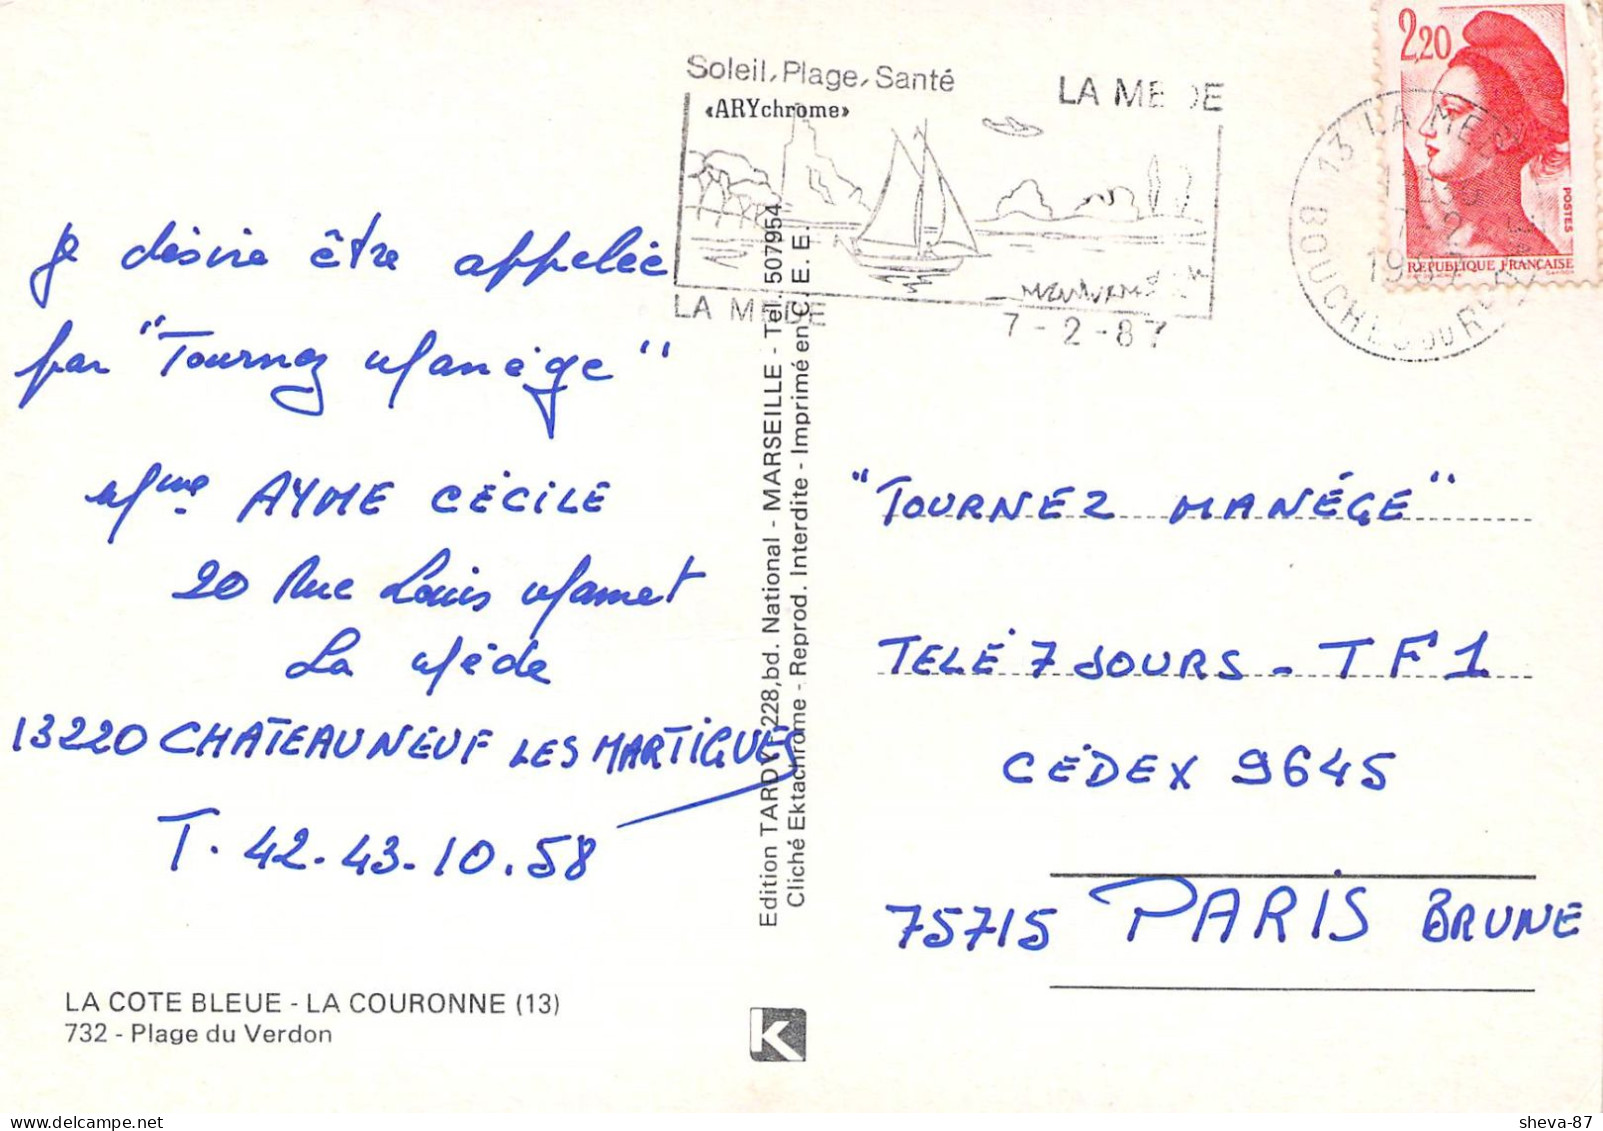 Soleil, Plage, Santé
LA MEDE
«ARYchrome»
LA MEDE
7-2-87
13 LA MEDE
7-2
1987
BOUCHES DU RHONE
2,20
POSTES
REPUBLIQUE FRANÇAISE
Je désire être appelée
par "Tournez Manège"
Mme AYME CÉCILE
20 Rue Louis Mamet
La Mède
13220 CHATEAUNEUF LES MARTIGUES
T. 42.43.10.58
LA COTE BLEUE - LA COURONNE (13)
732 - Plage du Verdon
Edition TARDY - 228, bd. National - MARSEILLE - Tél. 507954
Cliché Ektachrome - Reprod. Interdite - Imprimé en C. E. E.
K
"TOURNEZ MANÉGE"
TELÉ 7 JOURS - TF1
CÉDEX 9645
75715 PARIS BRUNE
delcampe.net
sheva-87